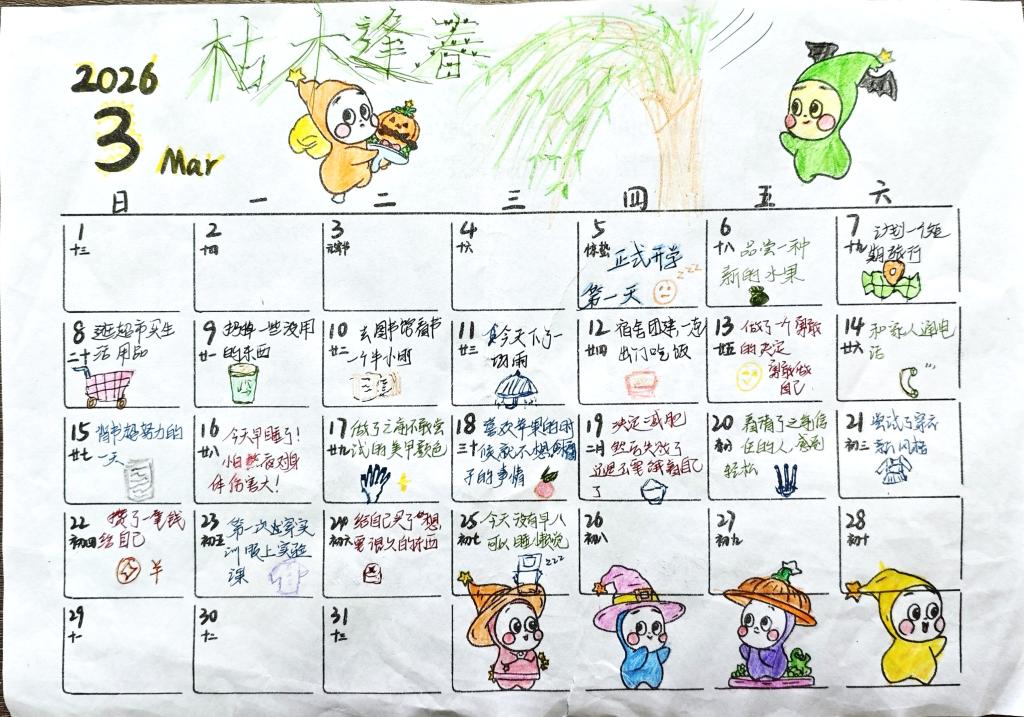 枯木逢春
2026
3
Mar
日 一 二 三 四 五 六
1
十三
2
十四
3
元宵节
4
十六
5
惊蛰
正式开学
第一天
zzz
6
十八
品尝一种
新的水果
7
十九
计划一个短
期旅行
8
二十
逛超市买生
活用品
9
廿一
扔掉一些没用
的东西
10
廿二
去图书馆看书
一个半小时
11
廿三
今天下了一
场雨
12
廿四
宿舍团建一起
出门吃饭
13
廿五
做了一个勇敢
的决定
勇敢做
自己
14
廿六
和家人通电
话
15
廿七
背书超努力的
一天
16
廿八
今天早睡了!
熬夜对身
体伤害大!
17
廿九
做了之前不敢尝
试的美甲颜色
18
三十
喜欢苹果的时
候就不想
子的事情
19
二月
决定减肥
然后失败了
还是不要饿着自己
了
20
看清了之前信
任的人,感到
轻松
21
初三
尝试了穿衣
新风格
22
初四
攒了一笔钱
给自己
¥
23
初五
第一次
训服上实验
课
24
初六
给自己买了想
要很久的东西
25
初七
今天没有早八
可以睡懒觉
zzz
26
初八
27
初九
28
初十
29
十一
30
十二
31
十三